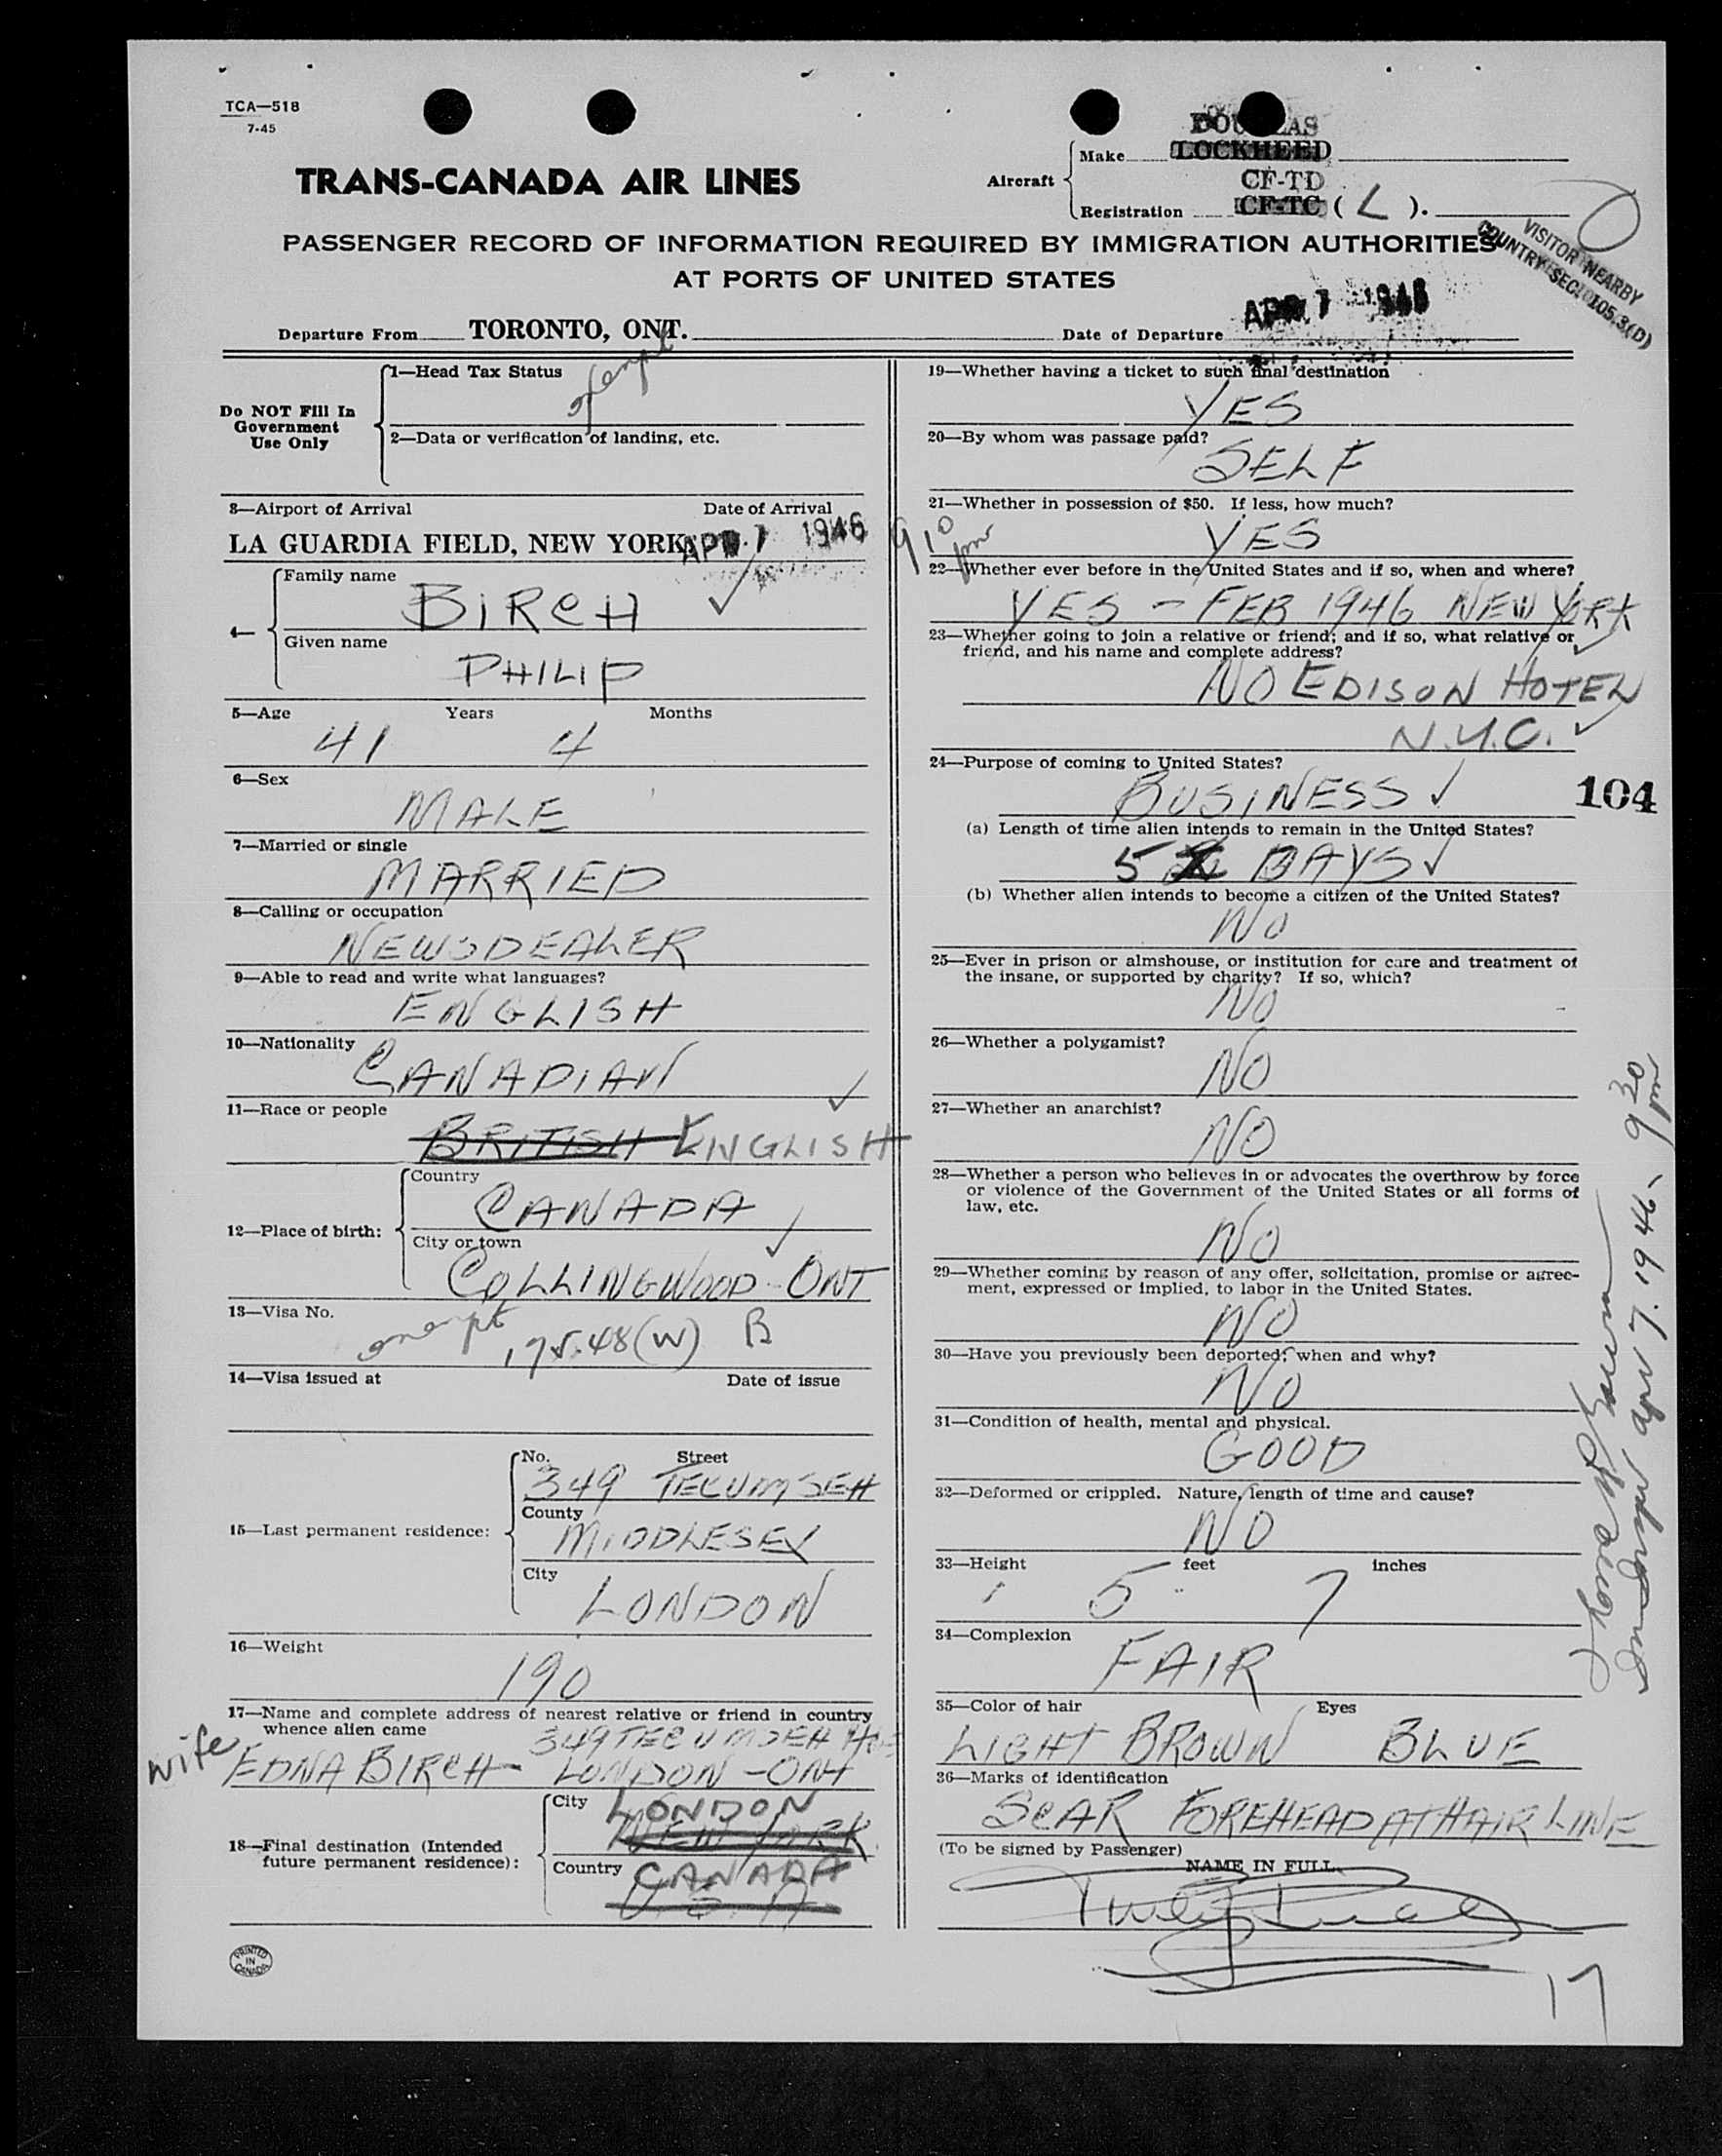 TCA—518
7-45
DOUGLAS
Make LOCKHEED
TRANS-CANADA AIR LINES
Aircraft
CF-TD
Registration CF-TC ( L ).
PASSENGER RECORD OF INFORMATION REQUIRED BY IMMIGRATION AUTHORITIES
AT PORTS OF UNITED STATES
VISITOR NEARBY
COUNTRY SEC. 105.3(D)
Departure From TORONTO, ONT.
Date of Departure APR. 7 1946
Do NOT Fill In
Government
Use Only
1—Head Tax Status
exempt
2—Data or verification of landing, etc.
3—Airport of Arrival Date of Arrival
LA GUARDIA FIELD, NEW YORK APR. 7 1946
9 10 pm
4—
Family name
BIRCH
Given name
PHILIP
5—Age Years Months
41 4
6—Sex
MALE
7—Married or single
MARRIED
8—Calling or occupation
NEWSDEALER
9—Able to read and write what languages?
ENGLISH
10—Nationality
CANADIAN
11—Race or people
BRITISH ENGLISH
12—Place of birth:
Country
CANADA
City or town
COLLINGWOOD - ONT
13—Visa No.
exempt 175.48(W) B
14—Visa issued at Date of issue
15—Last permanent residence:
No. Street
349 TECUMSEH
County
MIDDLESEX
City
LONDON
16—Weight
190
17—Name and complete address of nearest relative or friend in country
whence alien came
349 TECUMSEH AVE
wife EDNA BIRCH - LONDON - ONT
18—Final destination (Intended
future permanent residence):
City LONDON
NEW YORK
Country CANADA
U.S.A
PRINTED
IN
CANADA
19—Whether having a ticket to such final destination
YES
20—By whom was passage paid?
SELF
21—Whether in possession of $50. If less, how much?
YES
22—Whether ever before in the United States and if so, when and where?
YES - FEB 1946 NEW YORK
23—Whether going to join a relative or friend; and if so, what relative or
friend, and his name and complete address?
NO EDISON HOTEL
N.Y.C.
24—Purpose of coming to United States?
BUSINESS
104
(a) Length of time alien intends to remain in the United States?
5 DAYS
(b) Whether alien intends to become a citizen of the United States?
NO
25—Ever in prison or almshouse, or institution for care and treatment of
the insane, or supported by charity? If so, which?
NO
26—Whether a polygamist?
NO
27—Whether an anarchist?
NO
28—Whether a person who believes in or advocates the overthrow by force
or violence of the Government of the United States or all forms of
law, etc.
NO
29—Whether coming by reason of any offer, solicitation, promise or agree-
ment, expressed or implied, to labor in the United States.
NO
30—Have you previously been deported; when and why?
NO
31—Condition of health, mental and physical.
GOOD
32—Deformed or crippled. Nature, length of time and cause?
NO
33—Height feet inches
5 7
34—Complexion
FAIR
35—Color of hair Eyes
LIGHT BROWN BLUE
36—Marks of identification
SCAR FOREHEAD AT HAIR LINE
(To be signed by Passenger)
NAME IN FULL
Philip Birch
17
Imm Inspr Apr 7. 1946 - 9 30 pm